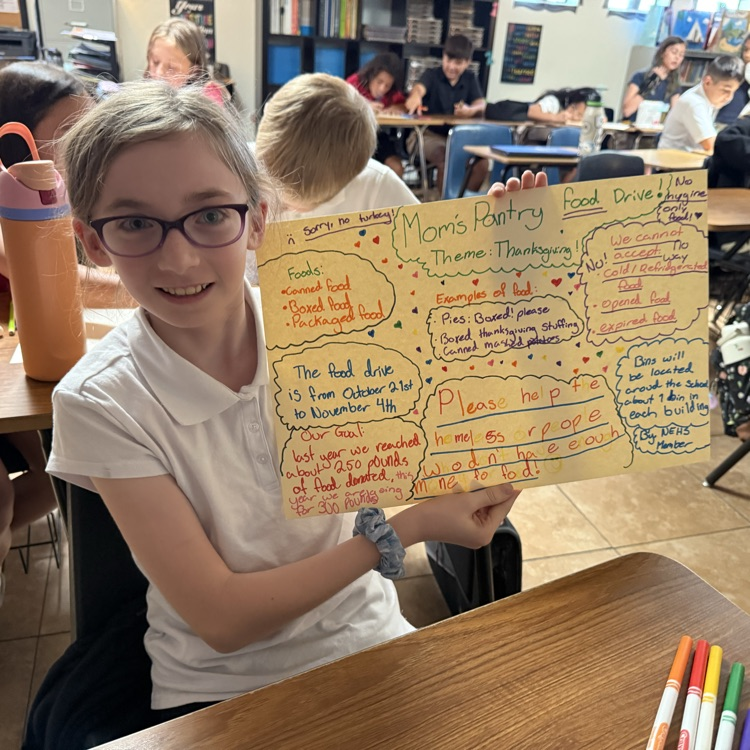 :( Sorry, no turkey!
Mom's Pantry Food Drive!
Theme: Thanksgiving!
No
hygine
only
food! ♥
Foods:
• Canned food
• Boxed food
• Packaged food
Examples of food:
• Pies: Boxed! please
• Boxed thanksgiving stuffing
• Canned mashed potatoes
We cannot
No! accept: No way
• Cold/Refridgerated
food
• opened food
• expired food
The food drive
is from October 21st
to November 4th
Our Goal:
last year we reached
about 250 pounds
of food donated, this
year we are going
for 300 pounds!
Please help the
homeless or people
who don't have enough
for food!
Bins will
be located
around the School
about 1 bin in
each building
By NEHS
Member